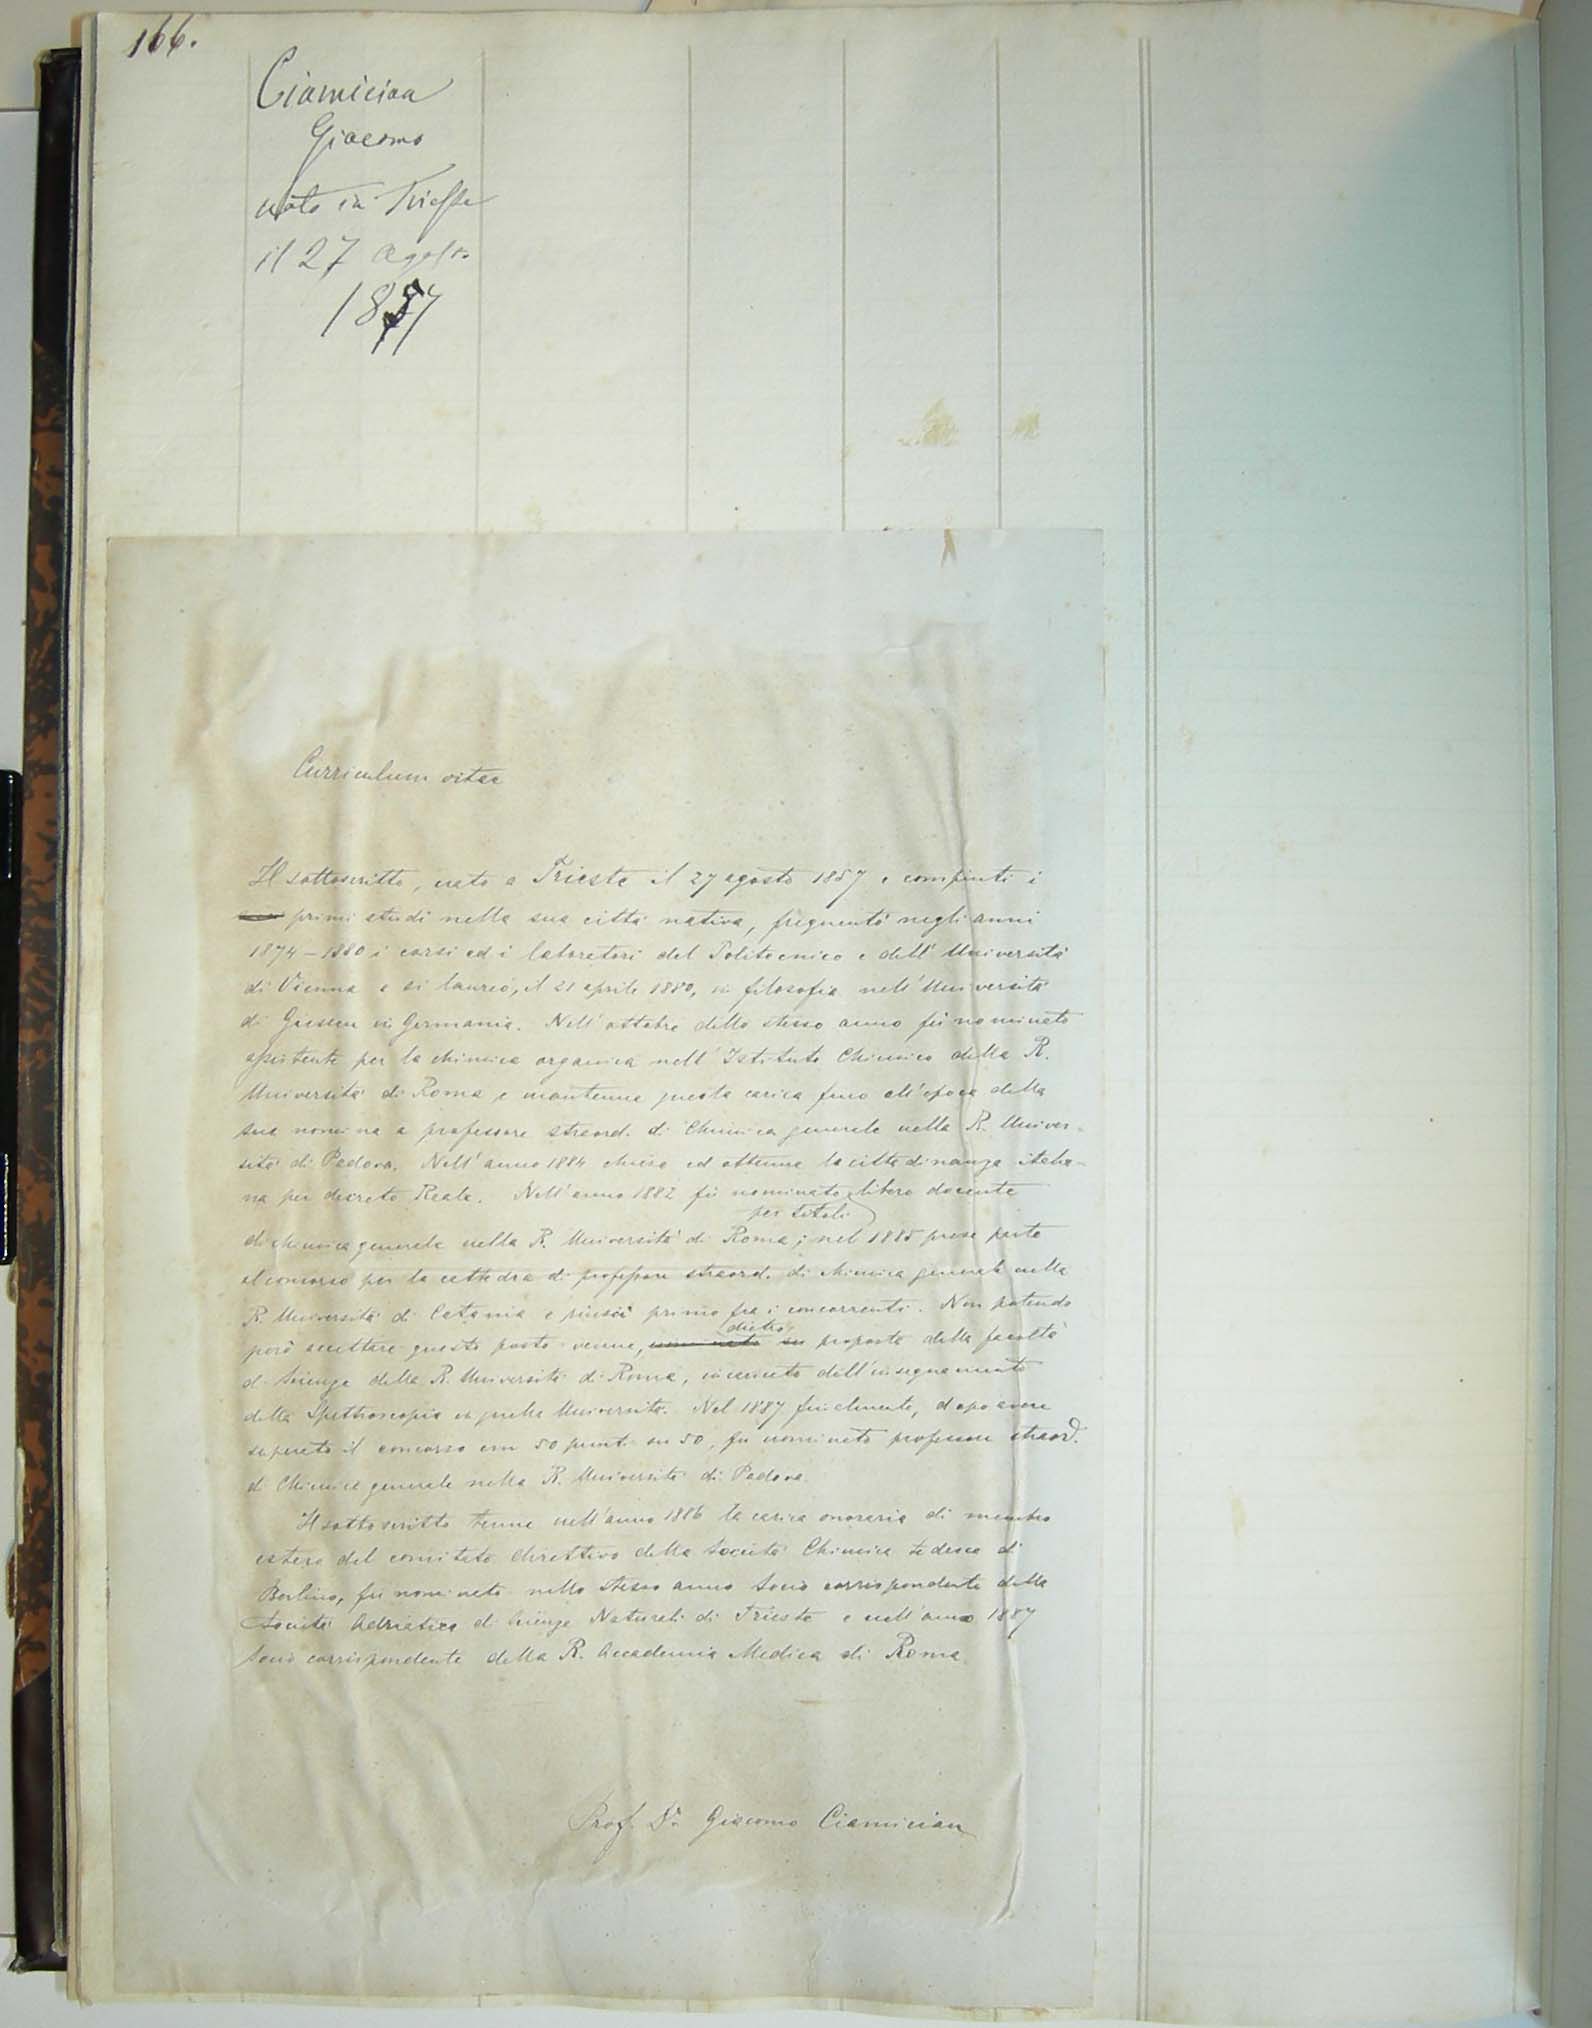 166.
Ciamician
Giacomo
nato in Trieste
il 27 agosto
1857
Curriculum vitae
Il sottoscritto, nato a Trieste il 27 agosto 1857, compiuti i
primi studi nella sua città nativa, frequentò negli anni
1874–1880 i corsi ed i laboratori del Politecnico e dell'Università
di Vienna e si laureò, il 21 aprile 1880, in filosofia nell'Università
di Giessen in Germania. Nell'ottobre dello stesso anno fù nominato
assistente per la chimica organica nell'Istituto Chimico della R.
Università di Roma e mantenne questa carica fino all'epoca della
sua nomina a professore straord. di Chimica generale nella R. Univer-
sità di Padova. Nell'anno 1884 chiese ed ottenne la cittadinanza italia-
na per decreto Reale. Nell'anno 1882 fù nominato libero docente
per titoli
di chimica generale nella R. Università di Roma; nel 1885 prese parte
al concorso per la cattedra di professore straord. di chimica generale nella
R. Università di Catania e riuscì primo fra i concorrenti. Non potendo
però accettare questo posto venne, dietro proposta della facoltà
di Scienze della R. Università di Roma, incaricato dell'insegnamento
della Spettroscopia in quella Università. Nel 1887 finalmente, dopo avere
superato il concorso con 50 punti su 50, fu nominato professore straord.
di Chimica generale nella R. Università di Padova.
Il sottoscritto tenne nell'anno 1886 la carica onoraria di membro
estero del comitato direttivo della Società Chimica tedesca di
Berlino, fù nominato nello stesso anno Socio corrispondente della
Società Adriatica di Scienze Naturali di Trieste e nell'anno 1887
Socio corrispondente della R. Accademia Medica di Roma.
Prof. Dr. Giacomo Ciamician